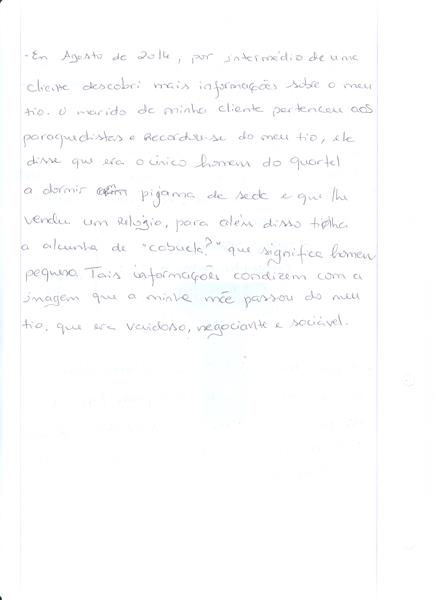 - Em Agosto de 2014, por intermédio de uma
cliente descobri mais informações sobre o meu
tio. O marido de minha cliente pertenceu aos
paraquedistas e Recordou-se do meu tio, ele
disse que era o único homem do quartel
a dormir em pijama de seda e que lhe
vendeu um Relógio, para além disso tinha
a alcunha de "cabucla?" que significa homem
pequeno. Tais informações condizem com a
imagem que a minha mãe passou do meu
tio, que era vaidoso, negociante e sociável.